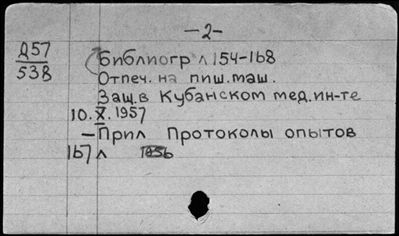 -2-
Д57
538
Библиогр л 154-168
Отпеч. на пиш. маш.
Защ. в Кубанском мед. ин-те
10. X. 1957
- Прил Протоколы опытов
167 л